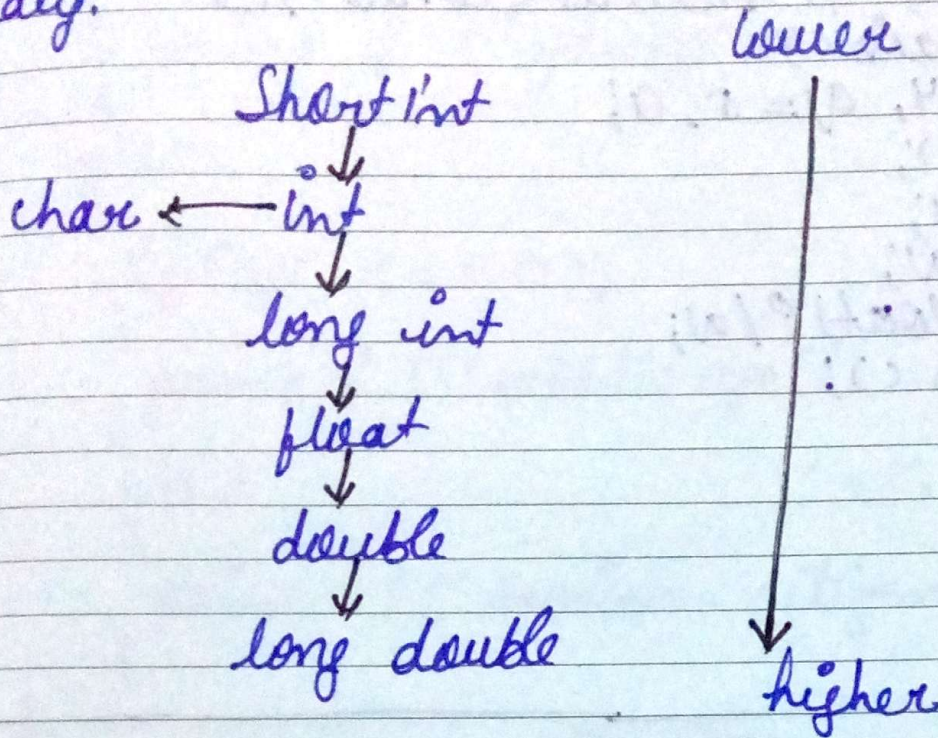 lower
Short int
char int
long int
float
double
long double
higher